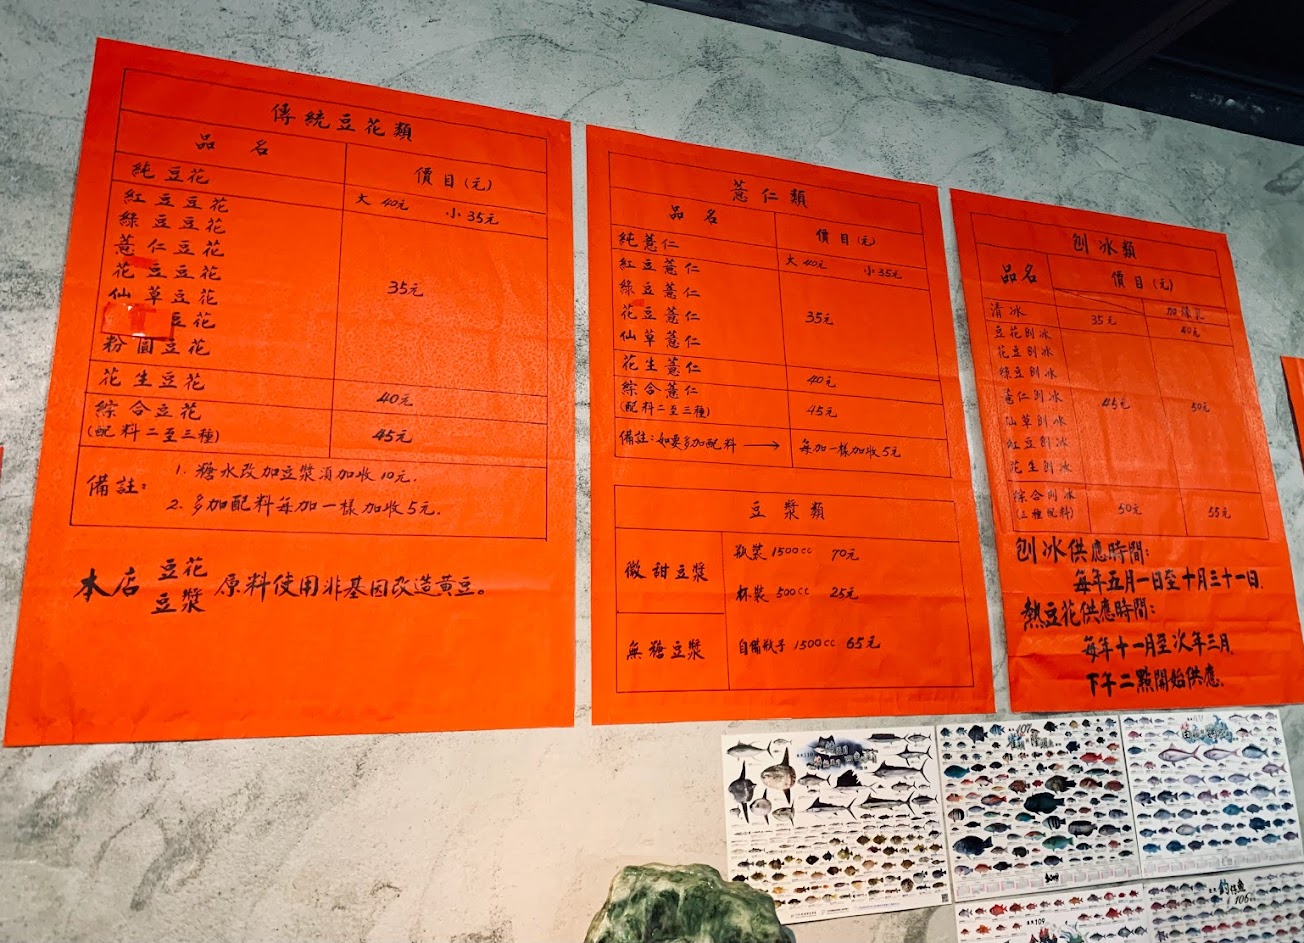 傳統豆花類
品名 價目(元)
純豆花 大40元 小35元
紅豆豆花
綠豆豆花
薏仁豆花
花豆豆花
仙草豆花
豆花
粉圓豆花
35元
花生豆花 40元
綜合豆花
(配料二至三種) 45元
備註:
1. 糖水改加豆漿須加收10元.
2. 多加配料每加一樣加收5元.
本店 豆花 豆漿 原料使用非基因改造黃豆。
薏仁類
品名 價目(元)
純薏仁 大40元 小35元
紅豆薏仁
綠豆薏仁
花豆薏仁
仙草薏仁
35元
花生薏仁 40元
綜合薏仁
(配料二至三種) 45元
備註:如要多加配料 → 每加一樣加收5元
豆漿類
微甜豆漿
瓶裝1500cc 70元
杯裝500cc 25元
無糖豆漿
自備瓶子1500cc 65元
刨冰類
品名 價目(元)
清冰 35元 加煉乳 40元
豆花刨冰
花豆刨冰
綠豆刨冰
薏仁刨冰
仙草刨冰
紅豆刨冰
花生刨冰
45元 50元
綜合刨冰
(三種配料) 50元 55元
刨冰供應時間:
每年五月一日至十月三十一日.
熱豆花供應時間:
每年十一月至次年三月.
下午二點開始供應.
107
109
106